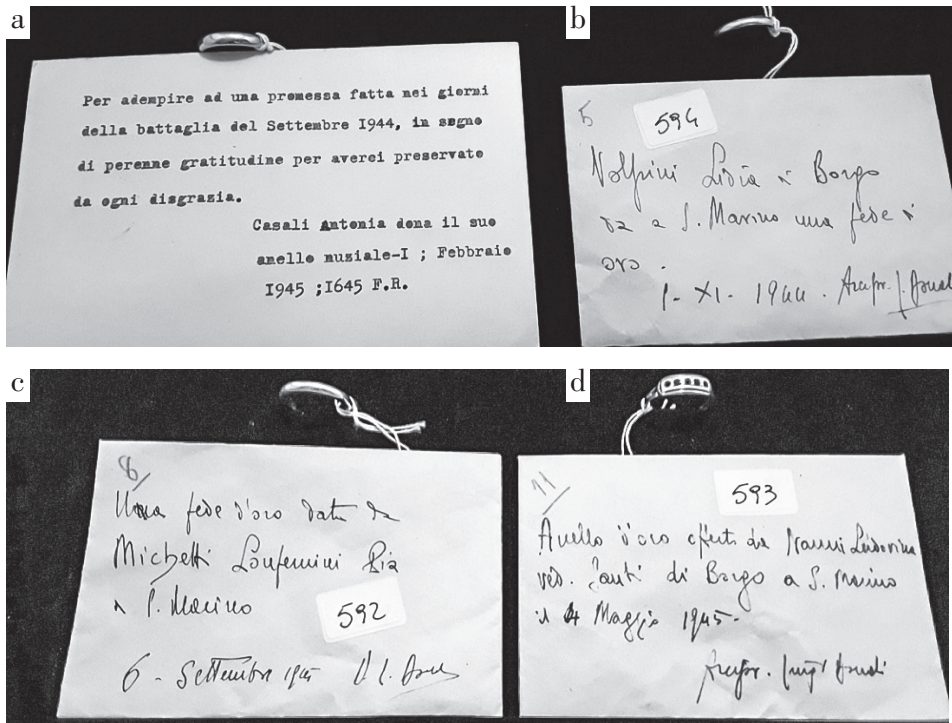 a
Per adempire ad una promessa fatta nei giorni
della battaglia del Settembre I944, in segno
di perenne gratitudine per averci preservato
da ogni disgrazia.
Casali Antonia dona il suo
anello nuziale-I ; Febbraio
I945 ;I645 F.R.
b
5
594
Volfini Lidia di Borgo
da a S. Marino una fede di
oro.
1 - XI - 1944.
c
8
Una fede d'oro data da
Michetti Pia
a S. Marino
592
6 - Settembre 1945
d
11
593
Anello d'oro offerto da Nanni Ludovina
ved. di Borgo a S. Marino
il 4 Maggio 1945-
Arcipr. Luigi